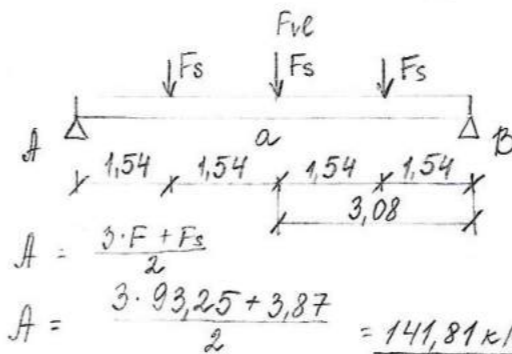 Fve
Fs Fs Fs
A a B
1,54 1,54 1,54 1,54
3,08
A = 3·F + Fs / 2
A = 3·93,25 + 3,87 / 2 = 141,81 k